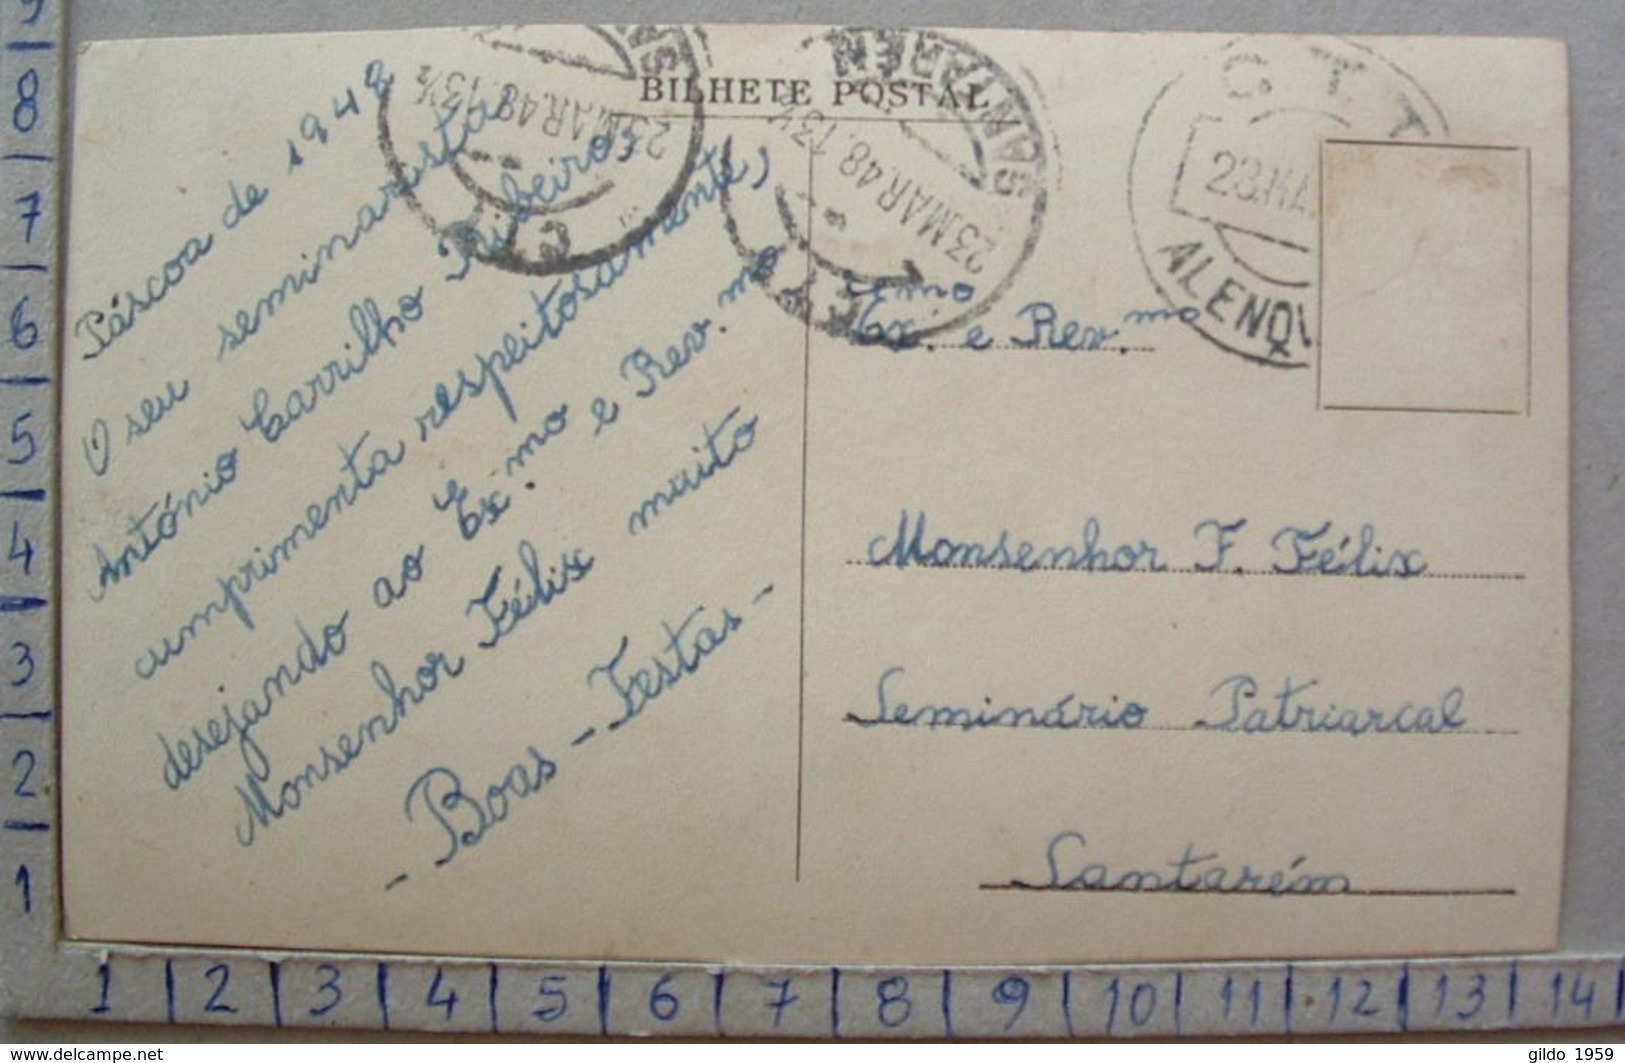 BILHETE POSTAL
Páscoa de 1948
O seu seminarista
António Carrilho Ribeiro,
cumprimenta respeitosamente,
desejando ao Ex.mo e Rev.mo
Monsenhor Félix muito
- Boas - Festas -
SANTARÉM
23.MAR.48.13½
23.MAR.48.13½
C. T. T.
23.MA
ALENQU
Ex.mo e Rev.mo
Monsenhor F. Félix
Seminário Patriarcal
Santarém
9
8
7
6
5
4
3
2
1
1 2 3 4 5 6 7 8 9 10 11 12 13 14
www.delcampe.net
gildo 1959